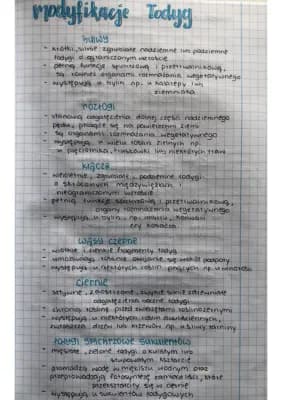 modyfikacje Łodyg
bulwy
- krótki, silnie zgrubiałe nadziemne lub podziemne
łodygi o ograniczonym wzroście
- pełnią funkcję spichrzową i przetrwalnikową,
są również organami rozmnażania wegetatywnego
- występują u bylin np. u kalarepy lub
ziemniaka
rozłogi
- stanowią odgałęzienia dolnej części nadziemnej
pędu, płożące się po powierzchni ziemi
- są organami rozmnażania wegetatywnego
- występują u wielu roślin zielnych np.
u pięciornika, truskawki lub niektórych traw
kłącza
- wieloletnie, zgrubiałe, podziemne łodygi
o skróconych międzywęźlach i
nieograniczonym wzroście
- pełnią funkcję spichrzową i przetrwalnikową,
organy rozmnażania wegetatywnego
- występują u bylin np. imbiru, konwalii
czy kosaćca
wąsy czepne
- wiotkie i cienkie fragmenty łodyg
- umożliwiają roślinie owijanie się wokół podpory
- występują u niektórych roślin pnących np. u winorośli
ciernie
- sztywne, zaostrzone, zwykle silnie zdrewniałe
odgałęzienia boczne łodygi
- chronią roślinę przed zwierzętami roślinożernymi
- występują u niektórych roślin dwuliściennych,
zwłaszcza drzew lub krzewów np. u śliwy tarniny
łodygi spichrzowe sukulentów
- mięsiste, zielone łodygi o kulistym lub
słupowatym kształcie
- gromadzą wodę w miękiszu wodnym oraz
przeprowadzają fotosyntezę zamiast liści, które
przekształciły się w ciernie
- występują u sukulentów łodygowych